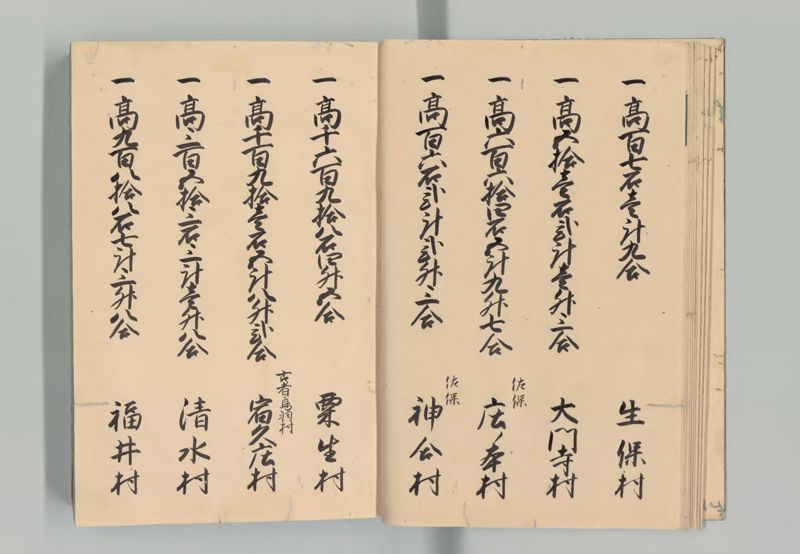 一高百七石壱斗九合 生保村
一高五拾壱石弐斗壱升三合 大門寺村
一高六百六拾四石五斗九升七合 佐保 庄ノ本村
一高百六石弐斗弐升三合 佐保 神合村
一高千六百九拾八石四升五合 粟生村
一高千百九拾壱石五斗八升弐合 古者馬羽村 宿久庄村
一高三百五拾三石三斗壱升八合 清水村
一高九百八拾八石七斗三升八合 福井村